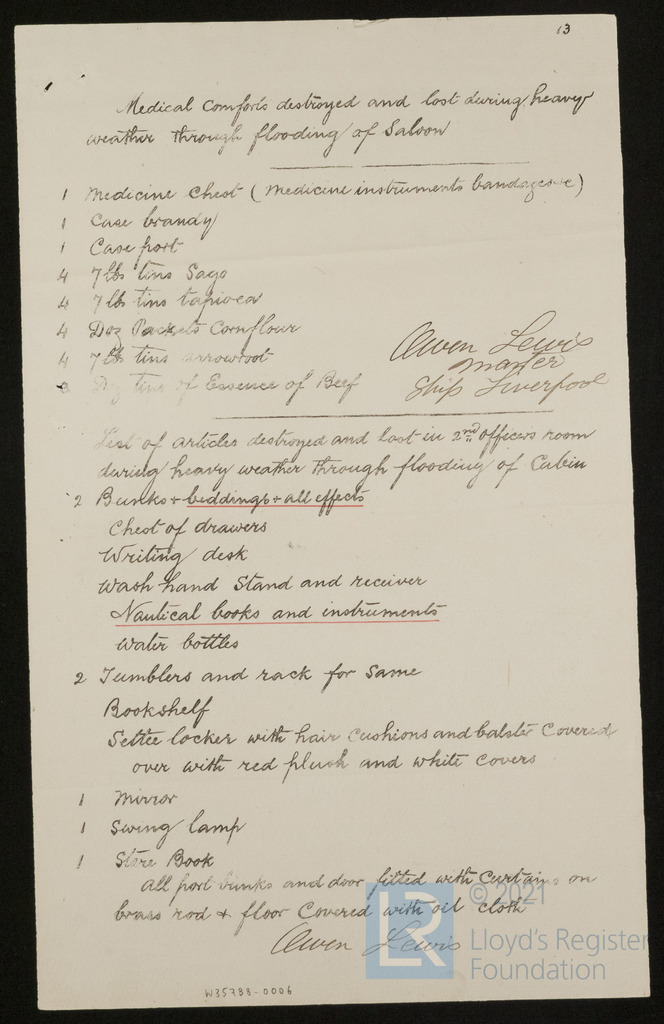 13
Medical Comforts destroyed and lost during heavy
weather through flooding of Saloon
1 Medicine Chest (Medicine instruments bandages &c)
1 Case brandy
1 Case port
4 7 lbs tins Sago
4 7 lbs tins tapioca
4 Doz Packets Cornflour
4 7 lbs tins arrowroot
Doz tins of Essence of Beef
Owen Lewis
Master
Ship Liverpool
List of articles destroyed and lost in 2nd officers room
during heavy weather through flooding of Cabin
2 Bunks + beddings + all effects
Chest of drawers
Writing desk
Wash hand Stand and receiver
Nautical books and instruments
Water bottles
2 Tumblers and rack for Same
Bookshelf
Settee locker with hair Cushions and balster Covered
over with red plush and white covers
1 Mirror
1 Swing lamp
1 Store Book
all port bunks and door fitted with Curtains on
brass rod & floor Covered with oil cloth
Owen Lewis
W35788-0006
LR
© 2021
Lloyd's Register
Foundation